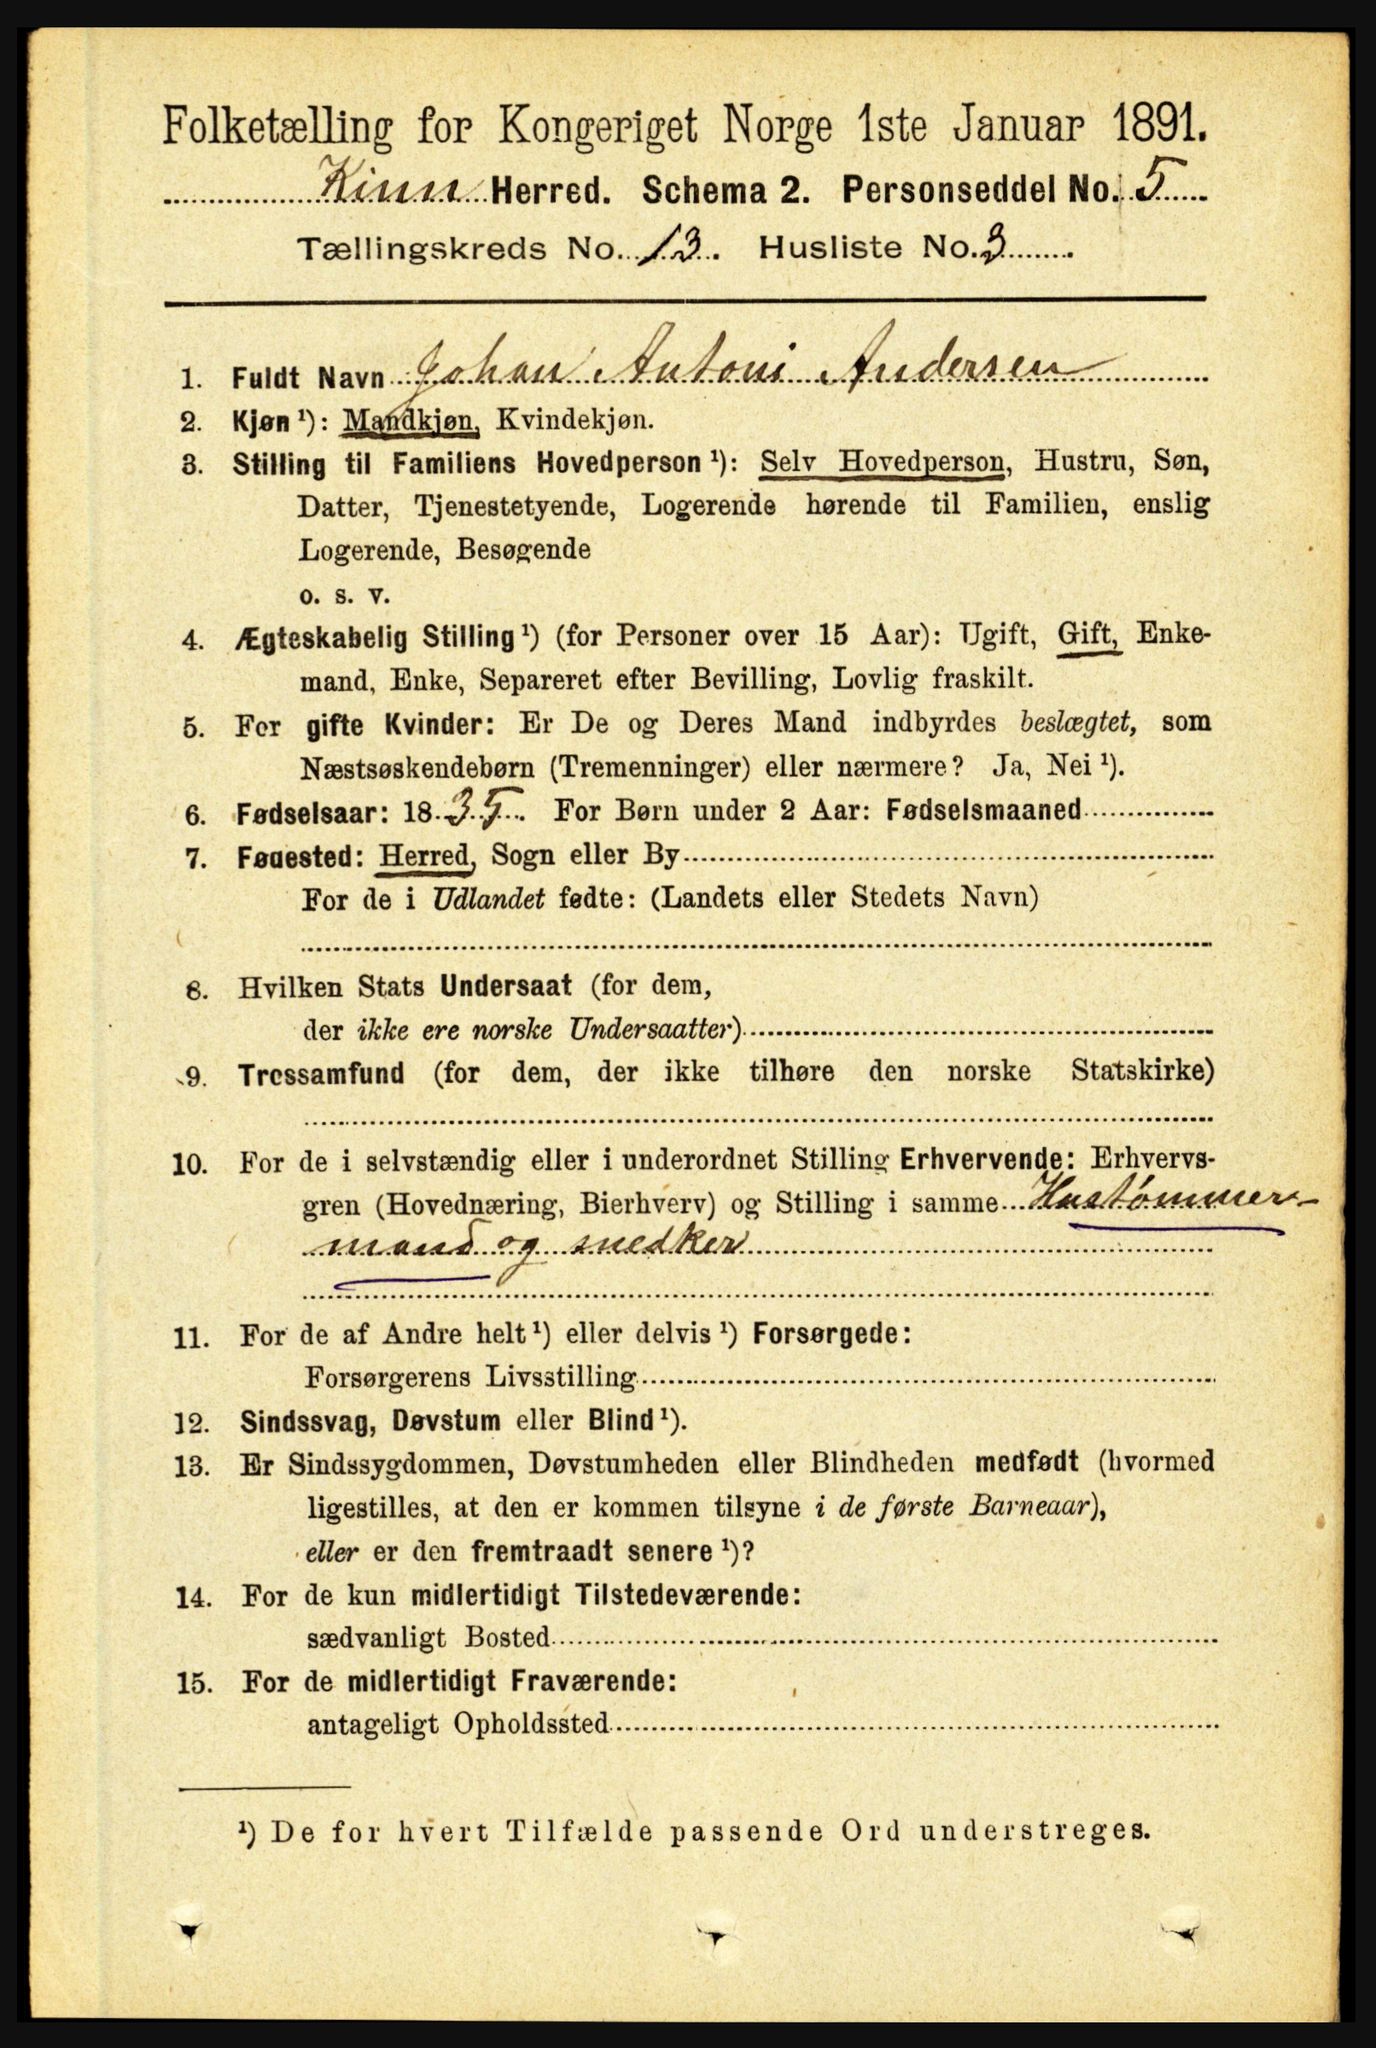 Folketælling for Kongeriget Norge 1ste Januar 1891.
Kinn Herred. Schema 2. Personseddel No. 5
Tællingskreds No. 13. Husliste No. 3
1. Fuldt Navn Johan Antoni Andersen
2. Kjøn ¹): Mandkjøn, Kvindekjøn.
3. Stilling til Familiens Hovedperson ¹): Selv Hovedperson, Hustru, Søn,
Datter, Tjenestetyende, Logerende hørende til Familien, enslig
Logerende, Besøgende
o. s. v.
4. Ægteskabelig Stilling ¹) (for Personer over 15 Aar): Ugift, Gift, Enke-
mand, Enke, Separeret efter Bevilling, Lovlig fraskilt.
5. For gifte Kvinder: Er De og Deres Mand indbyrdes beslægtet, som
Næstsøskendebørn (Tremenninger) eller nærmere? Ja, Nei ¹).
6. Fødselsaar: 1835. For Børn under 2 Aar: Fødselsmaaned
7. Fødested: Herred, Sogn eller By
For de i Udlandet fødte: (Landets eller Stedets Navn)
8. Hvilken Stats Undersaat (for dem,
der ikke ere norske Undersaatter)
9. Trossamfund (for dem, der ikke tilhøre den norske Statskirke)
10. For de i selvstændig eller i underordnet Stilling Erhvervende: Erhvervs-
gren (Hovednæring, Bierhverv) og Stilling i samme Hustømmer-
mand og snedker
11. For de af Andre helt ¹) eller delvis ¹) Forsørgede:
Forsørgerens Livsstilling
12. Sindssvag, Døvstum eller Blind ¹).
13. Er Sindssygdommen, Døvstumheden eller Blindheden medfødt (hvormed
ligestilles, at den er kommen tilsyne i de første Barneaar),
eller er den fremtraadt senere ¹)?
14. For de kun midlertidigt Tilstedeværende:
sædvanligt Bosted
15. For de midlertidigt Fraværende:
antageligt Opholdssted
¹) De for hvert Tilfælde passende Ord understreges.